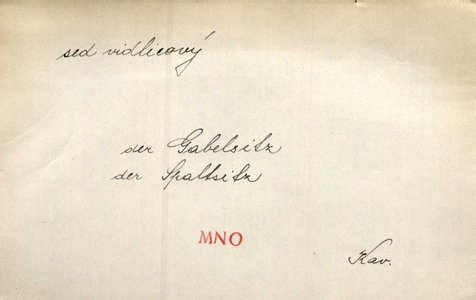 sed vidlicový
der Gabelsitz
der Spaltsitz
MNO
Kav.